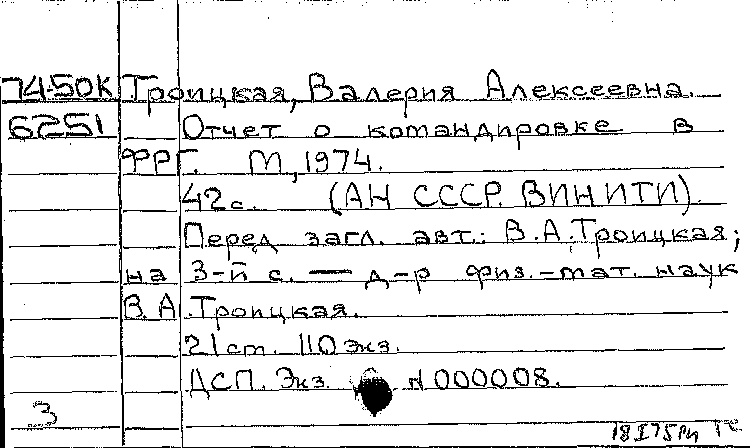 74-50к Троицкая, Валерия Алексеевна.
6251 Отчет о командировке в
ФРГ. М., 1974.
42с. (АН СССР. ВИНИТИ).
Перед загл. авт.: В.А.Троицкая;
на 3-й с. — д-р физ.-мат. наук
В.А.Троицкая.
21 ст. 110 экз.
ДСП. Экз. N 000008.
3
18 I 75